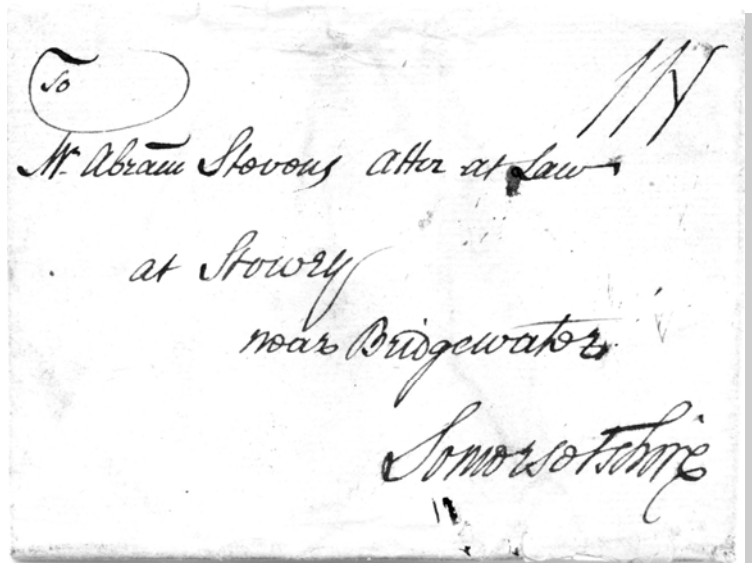 To
Mr. Abram Stevens attor at Law
at Stowey
near Bridgewater
Somersetshire